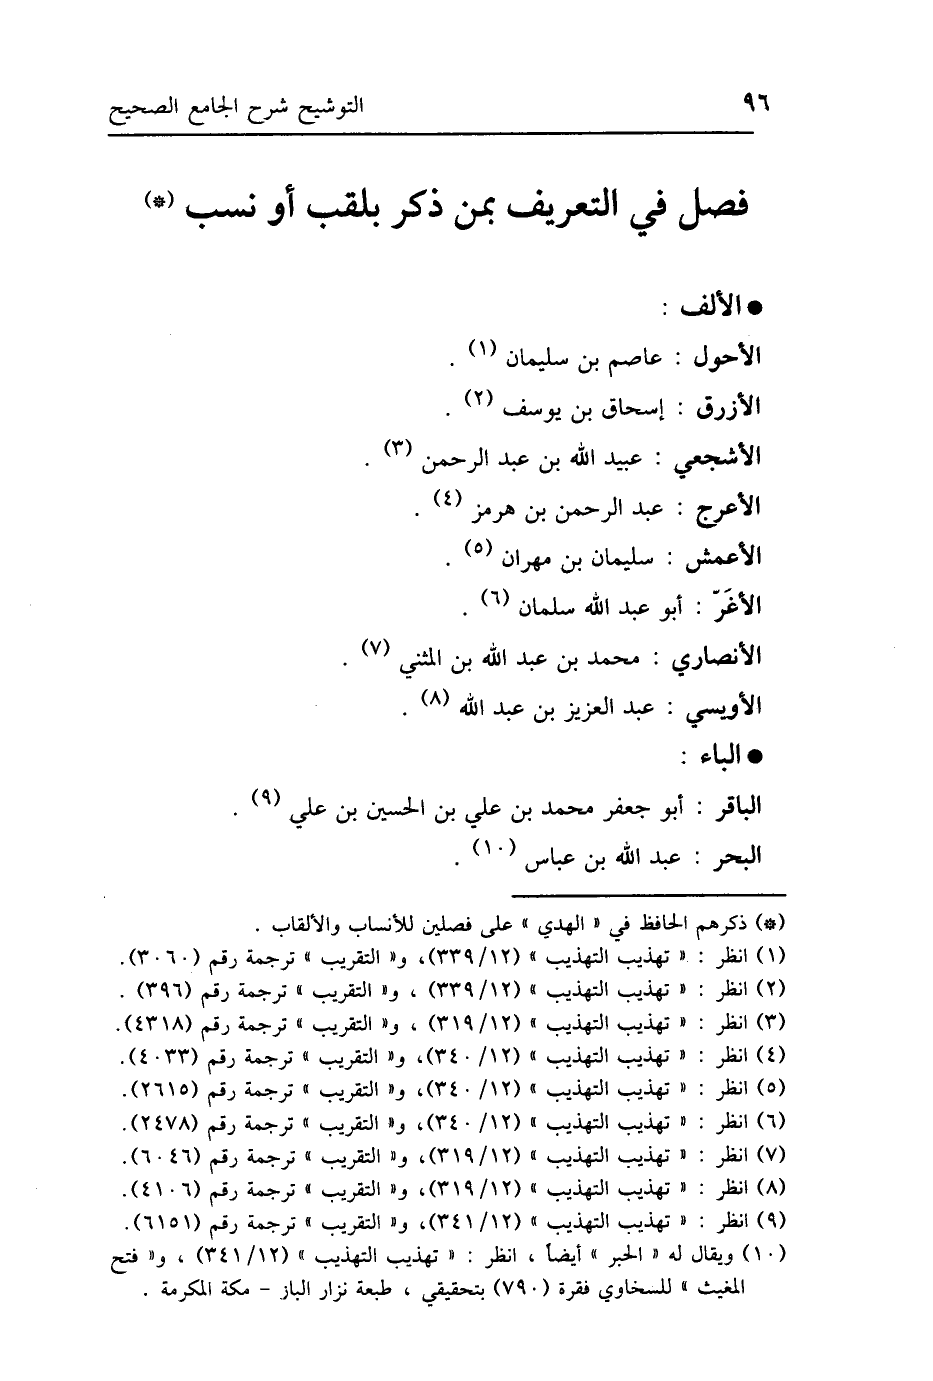 ٩٦ التوشيح شرح الجامع الصحيح
فصل في التعريف بمن ذكر بلقب أو نسب (*)
● الألف :
الأحول : عاصم بن سليمان (١) .
الأزرق : إسحاق بن يوسف (٢) .
الأشجعي : عبيد الله بن عبد الرحمن (٣) .
الأعرج : عبد الرحمن بن هرمز (٤) .
الأعمش : سليمان بن مهران (٥) .
الأغَرّ : أبو عبد الله سلمان (٦) .
الأنصاري : محمد بن عبد الله بن المثني (٧) .
الأويسي : عبد العزيز بن عبد الله (٨) .
● الباء :
الباقر : أبو جعفر محمد بن علي بن الحسين بن علي (٩) .
البحر : عبد الله بن عباس (١٠) .
(*) ذكرهم الحافظ في « الهدي » على فصلين للأنساب والألقاب .
(١) انظر : « تهذيب التهذيب » (٣٣٩/١٢)، و« التقريب » ترجمة رقم (٣٠٦٠).
(٢) انظر : « تهذيب التهذيب » (٣٣٩/١٢) ، و« التقريب » ترجمة رقم (٣٩٦) .
(٣) انظر : « تهذيب التهذيب » (٣١٩/١٢) ، و« التقريب » ترجمة رقم (٤٣١٨).
(٤) انظر : « تهذيب التهذيب » (٣٤٠/١٢)، و« التقريب » ترجمة رقم (٤٠٣٣).
(٥) انظر : « تهذيب التهذيب » (٣٤٠/١٢)، و« التقريب » ترجمة رقم (٢٦١٥).
(٦) انظر : « تهذيب التهذيب » (٣٤٠/١٢)، و« التقريب » ترجمة رقم (٢٤٧٨).
(٧) انظر : « تهذيب التهذيب » (٣١٩/١٢)، و« التقريب » ترجمة رقم (٦٠٤٦).
(٨) انظر : « تهذيب التهذيب » (٣١٩/١٢)، و« التقريب » ترجمة رقم (٤١٠٦).
(٩) انظر : « تهذيب التهذيب » (٣٤١/١٢)، و« التقريب » ترجمة رقم (٦١٥١).
(١٠) ويقال له « الحبر » أيضاً ، انظر : « تهذيب التهذيب » (٣٤١/١٢) ، و« فتح
المغيث » للسخاوي فقرة (٧٩٠) بتحقيقي ، طبعة نزار الباز - مكة المكرمة .